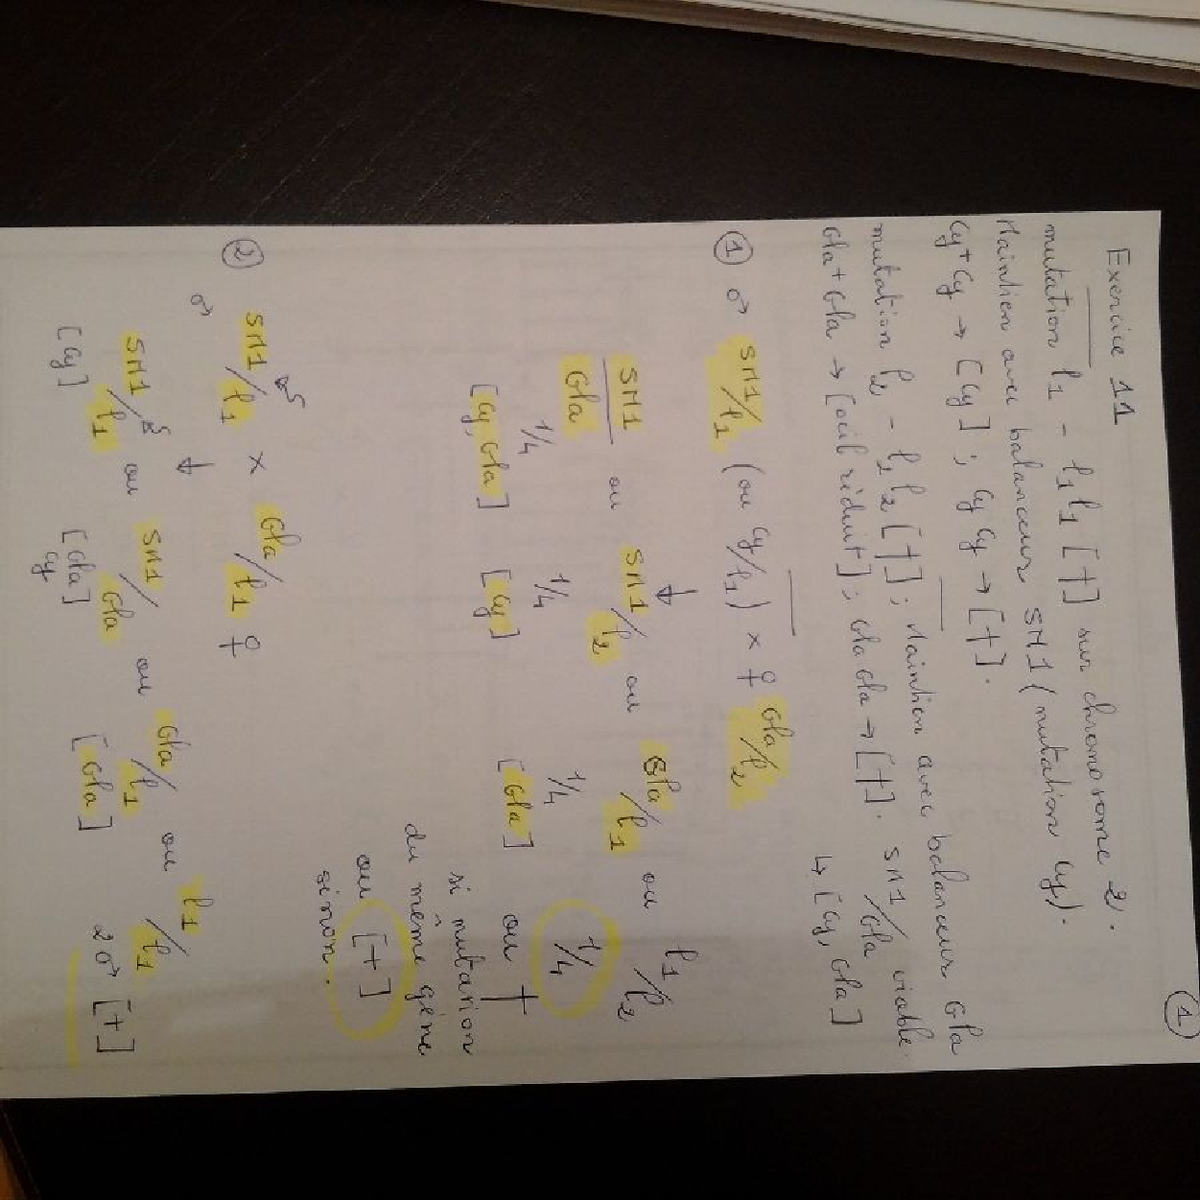 ①
Exercice 11
mutation l1 - l1l1 [†] sur chromosome 2.
Maintien avec balanceur SM1 (mutation Cy).
Cy+Cy → [Cy] ; Cy Cy → [†].
mutation l2 - l2l2 [†] ; Maintien avec balanceur Gla
Gla+Gla → [œil réduit] ; GlaGla → [†]. SM1/Gla viable.
↳ [Cy, Gla]
① ♂ SM1/l1 (ou Cy/l1) × ♀ Gla/l2
↓
SM1/Gla ou SM1/l2 ou Gla/l1 ou l1/l2
1/4 1/4 1/4 1/4
[Cy, Gla] [Cy] [Gla] ou †
si mutation
du même gène
ou [+]
sinon.
② ♂ SM1/l1 × Gla/l1 ♀
↓
SM1/l1 ou SM1/Gla ou Gla/l1 ou l1/l1
[Cy] [Gla Cy] [Gla] 2♂ [+]